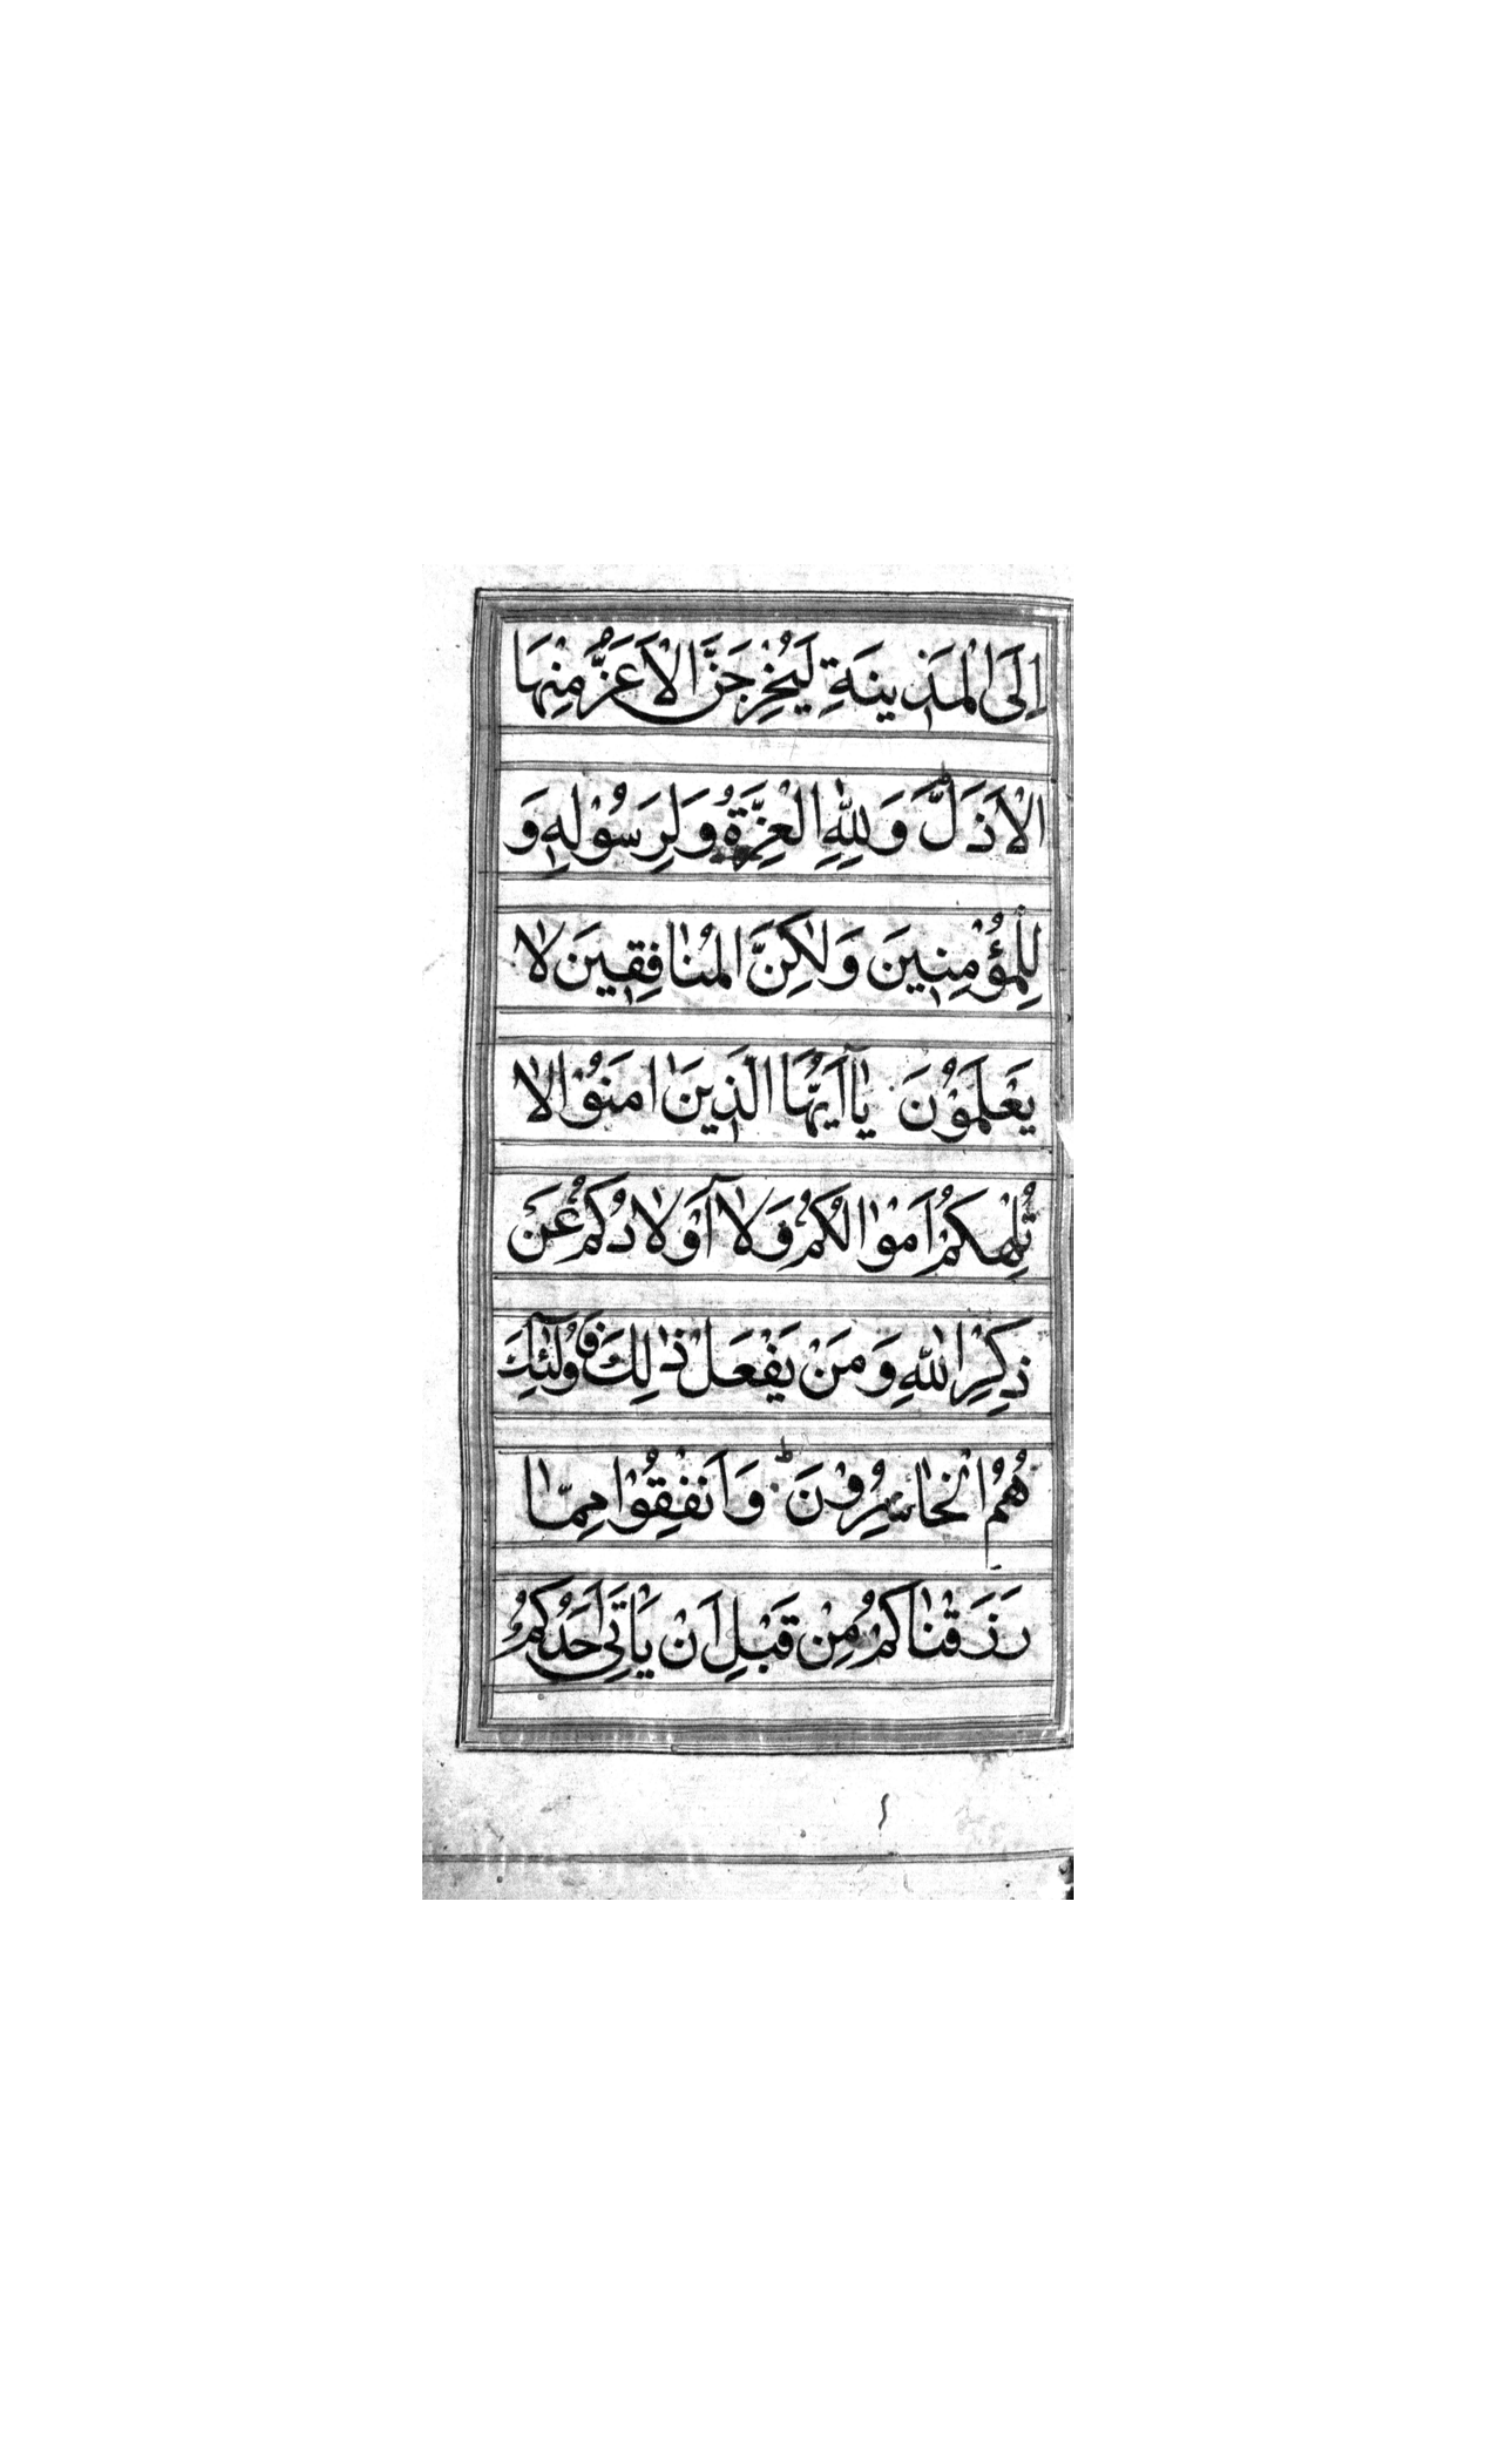 اِلَى الْمَدِينَةِ لَيُخْرِجَنَّ الْاَعَزُّ مِنْهَا
الْاَذَلَّ وَلِلّٰهِ الْعِزَّةُ وَلِرَسُوْلِهٖ وَ
لِلْمُؤْمِنِينَ وَلٰكِنَّ الْمُنٰافِقِينَ لٰا
يَعْلَمُوْنَ يٰٓا اَيُّهَا الَّذِينَ اٰمَنُوْا لٰا
تُلْهِكُمْ اَمْوٰالُكُمْ وَلٰٓا اَوْلٰادُكُمْ عَنْ
ذِكْرِ اللّٰهِ وَمَنْ يَفْعَلْ ذٰلِكَ فَاُولٰٓئِكَ
هُمُ الْخٰاسِرُوْنَ ط وَاَنْفِقُوْا مِمّٰا
رَزَقْنٰاكُمْ مِنْ قَبْلِ اَنْ يَاْتِىَ اَحَدَكُمُ